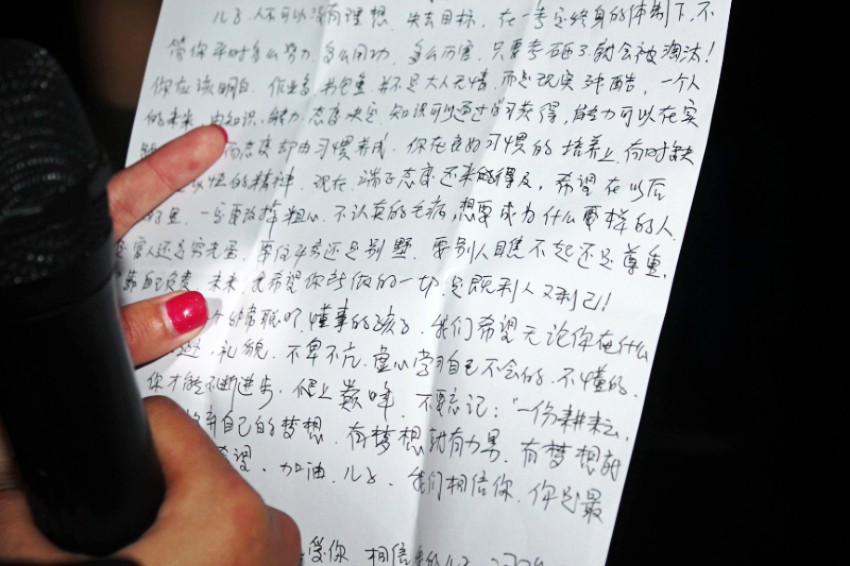 儿子,人不可以没有理想,失去目标,在一考定终身的体制下,不
管你平时多么努力,多么用功,多么厉害,只要考砸了就会被淘汰!
你应该明白,作业多书包重,并不是大人无情,而是现实残酷,一个人
的未来,由知识、能力、态度决定,知识可以通过学习获得,能力可以在实
而态度却由习惯养成,你在良好习惯的培养上,有时缺
恒的精神,现在,端正态度还来的得及,希望在以后
里,一定要改掉粗心,不认真的毛病,想要成为什么要样的人,
富人还是穷光蛋,要住平房还是别墅,要别人瞧不起还是尊重,
靠自己改变,未来,也希望你所做的一切,是既利人又利己!
个非常聪明,懂事的孩子,我们希望无论你在什么
礼貌,不卑不亢,虚心学习自己不会的,不懂的,
你才能不断进步,爬上巅峰,不要忘记:"一份耕耘,
弃自己的梦想,有梦想就有力量,有梦想就
希望,加油,儿子,我们相信你,你是最
爱你,相信你的儿子